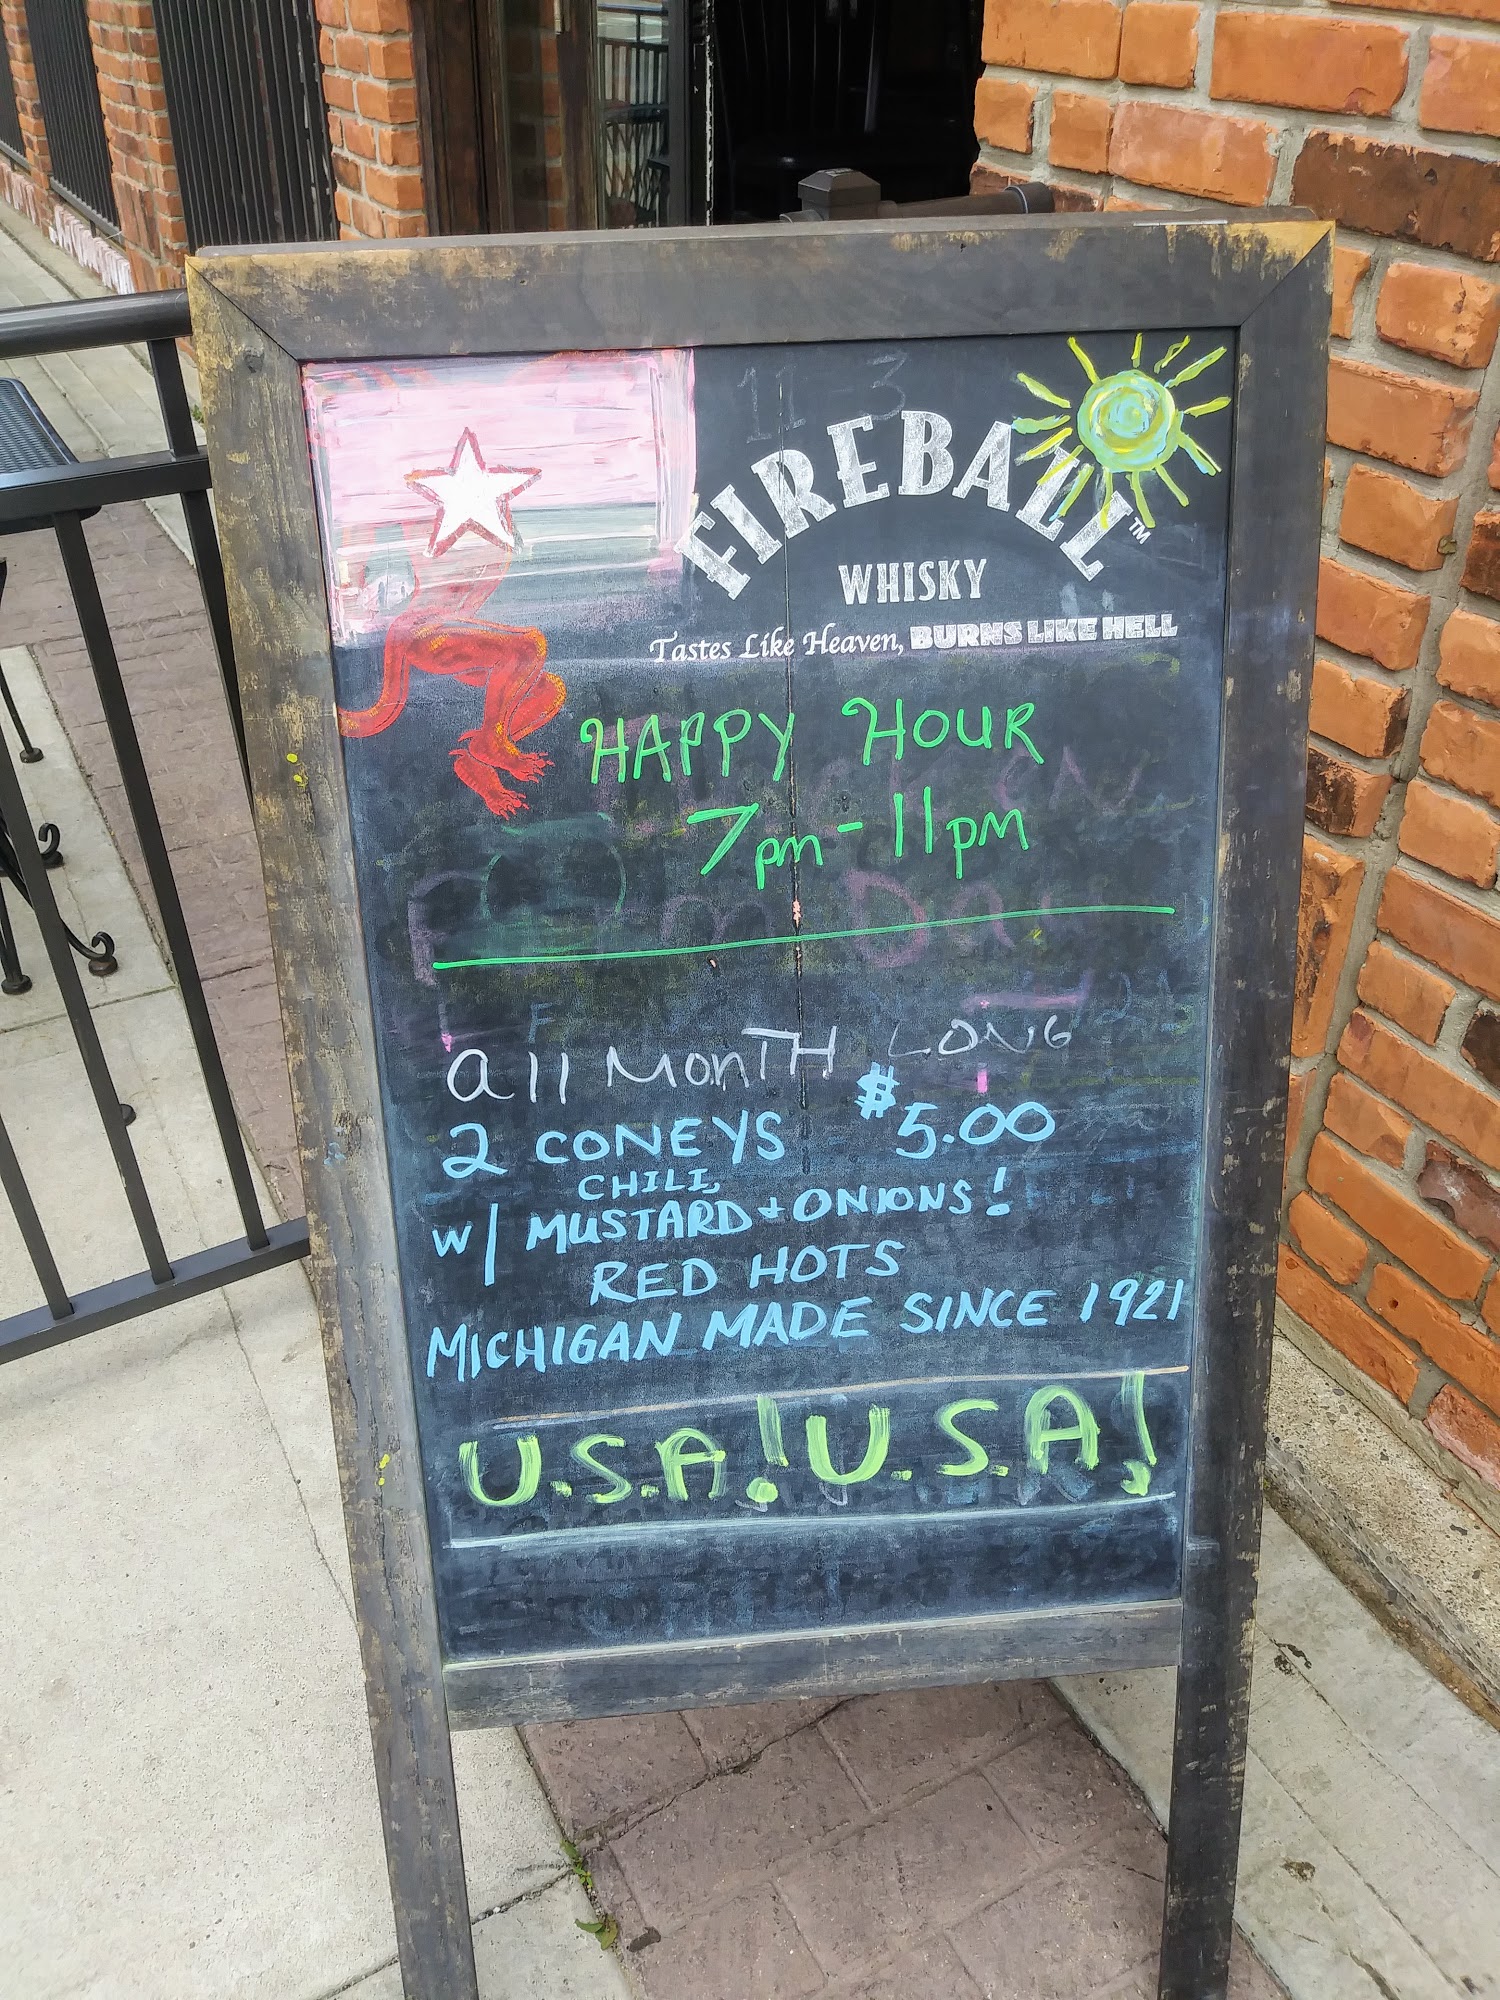 11-3
FIREBALL™
WHISKY
Tastes Like Heaven, BURNS LIKE HELL
HAPPY HOUR
7pm-11pm
all MONTH LONG
2 CONEYS $5.00
CHILI,
w/ MUSTARD + ONIONS!
RED HOTS
MICHIGAN MADE SINCE 1921
U.S.A! U.S.A!